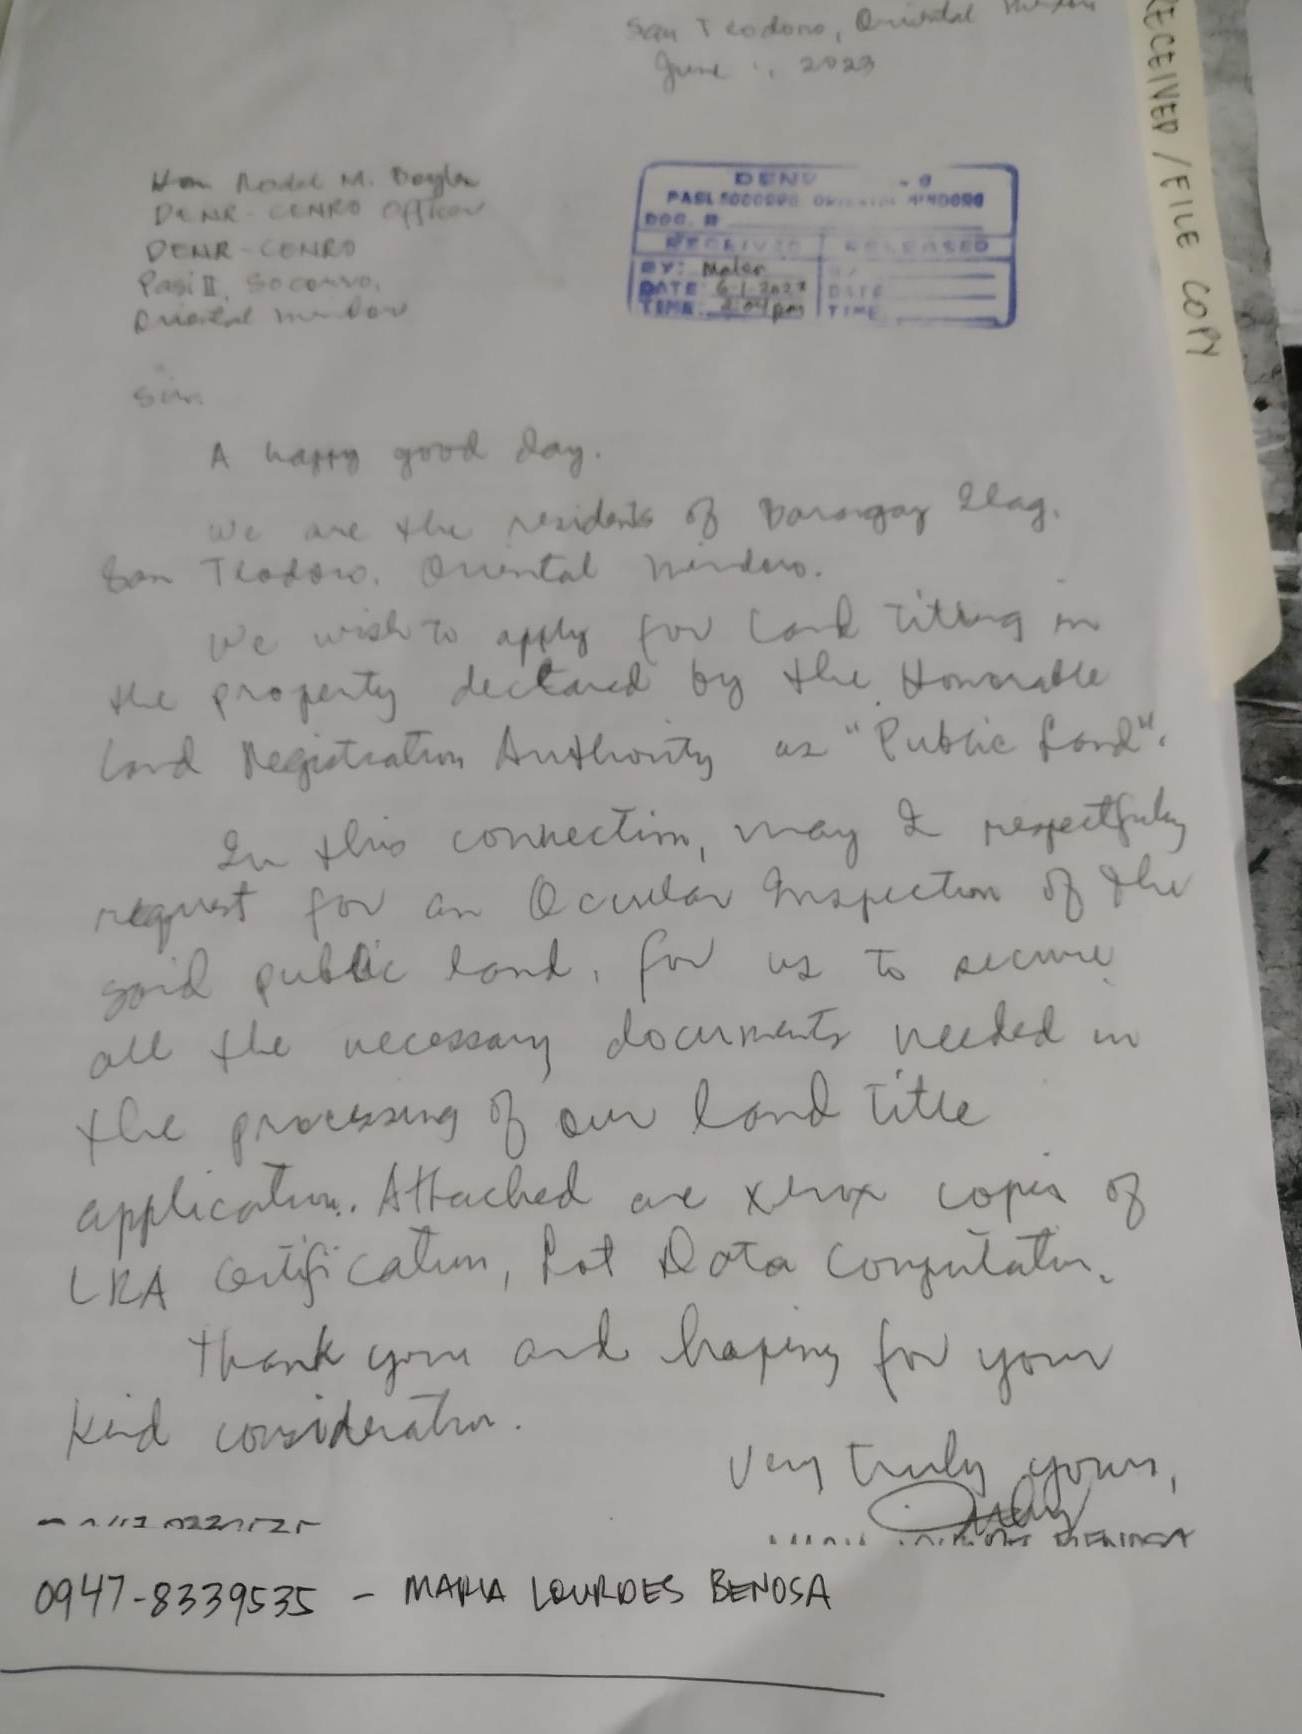 San Teodoro, Oriental
June 1, 2023
RECEIVED / FILE COPY
Hon. Rodel M. Boyles
DENR-CENRO Officer
DENR-CENRO
Pasi II, Socorro,
Oriental Mindoro
DENR
PASI, SOCORRO ORIENTAL MINDORO
DOC. #
RECEIVED RELEASED
BY:
DATE: 6-1-2023 DATE
TIME: 2:04 pm TIME
Sir,
A happy good day.
We are the residents of Barangay Ilag,
San Teodoro, Oriental Mindoro.
We wish to apply for land titling in
the property declared by the Honorable
Land Registration Authority as "Public Land".
In this connection, may I respectfully
request for an Ocular Inspection of the
said public land, for us to secure
all the necessary documents needed in
the processing of our land title
application. Attached are xerox copies of
LRA Certification, Lot Data Computation.
Thank you and hoping for your
kind consideration.
Very truly yours,
BENOSA
0947-8339535 - MARIA LOURDES BENOSA